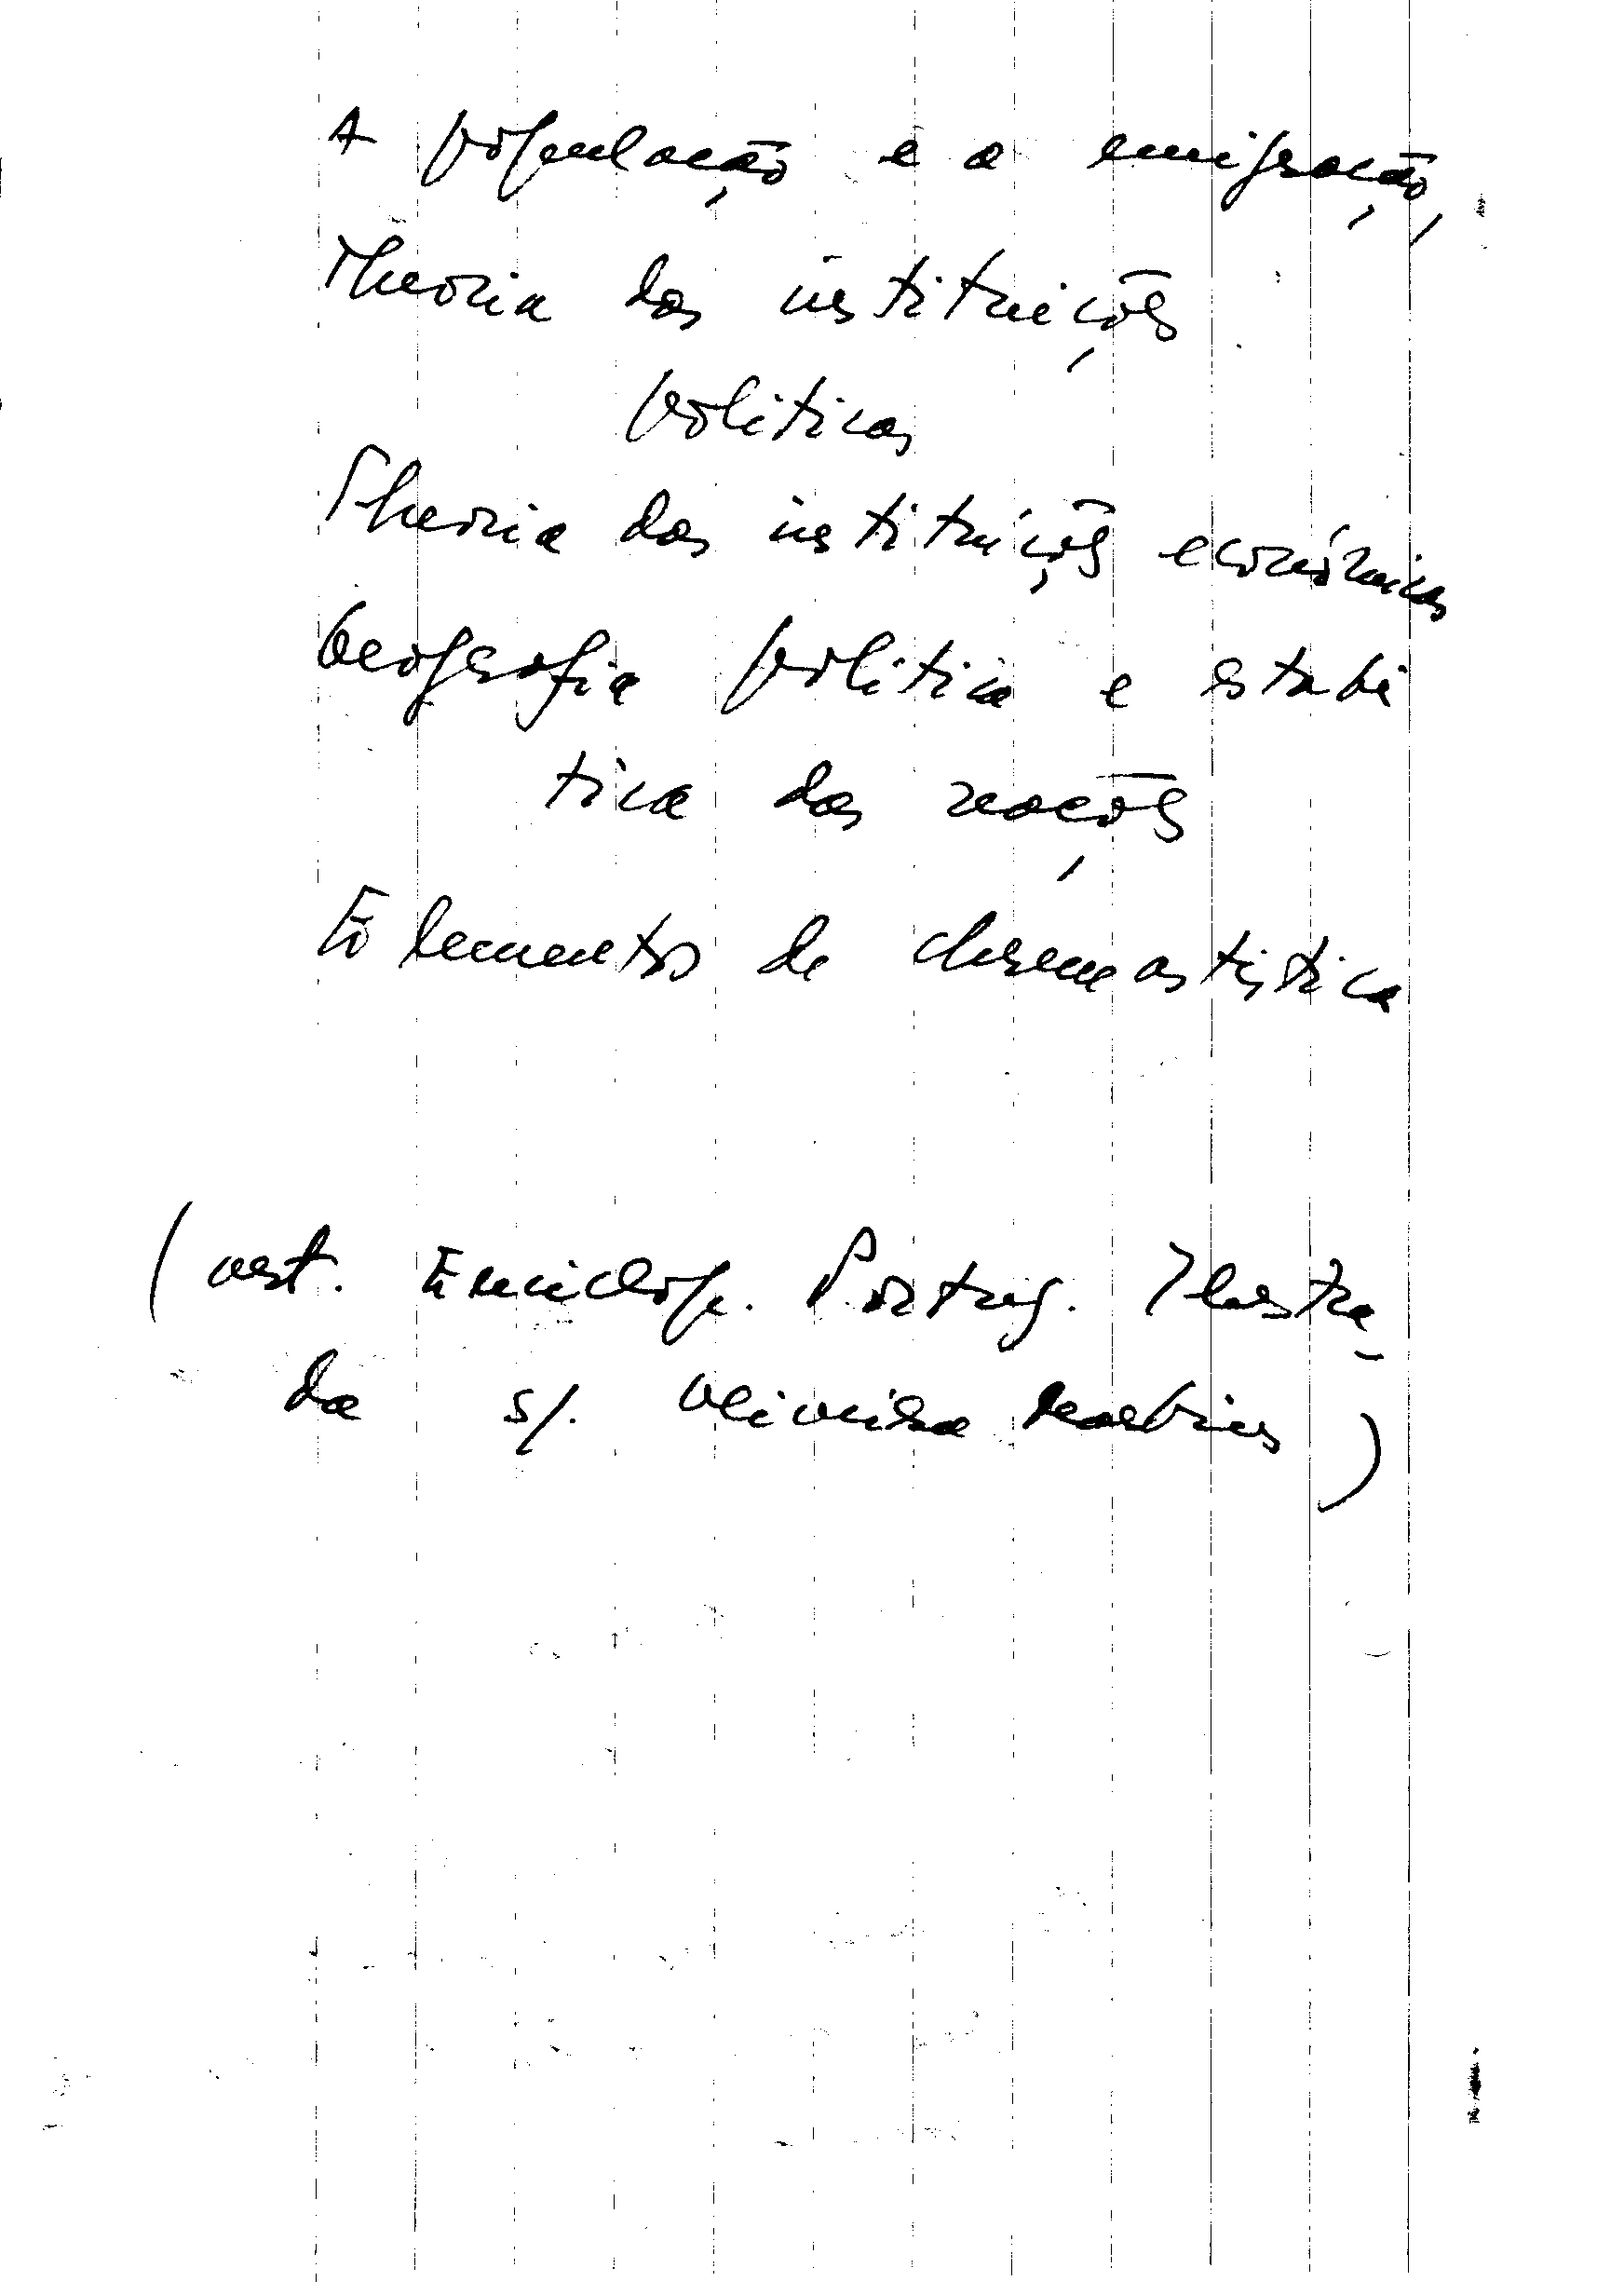 A população e a emigração,
Theoria das instituições
políticas
Theoria das instituições económicas
Geografia politica e estatis
tica das nações
Elementos de chrematistica
(art. Enciclop. Portug. Ilustra-
da s/. Oliveira Martins)